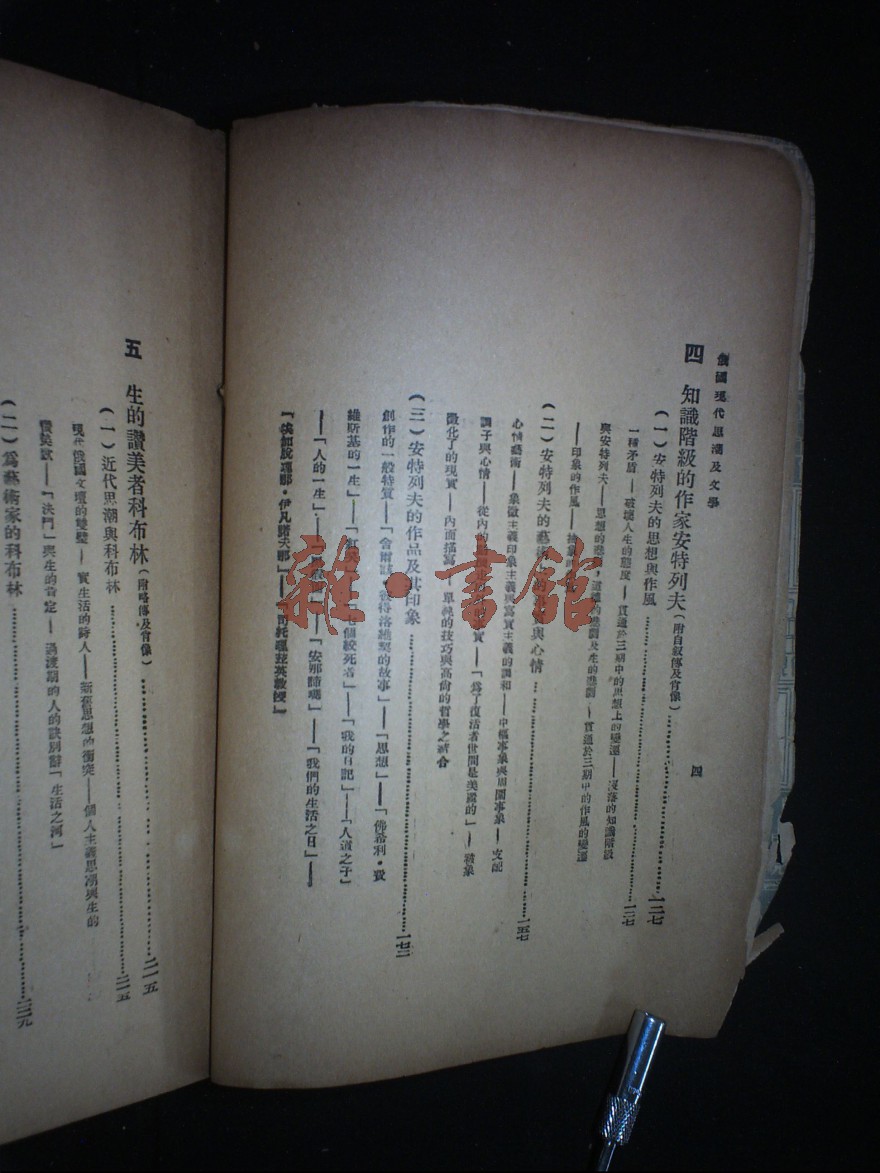 俄國現代思潮及文學
四
四 知識階級的作家安特列夫(附自叙傳及肖像)……一二七
(一)安特列夫的思想與作風……一二七
一種矛盾——破壞人生的態度——貫通於三期中的思想上的變遷——沒落的知識階級
與安特列夫——思想的悲劇,道德的悲劇及生的悲劇——貫通於三期中的作風的變遷
——印象的作風——抽象的
(二)安特列夫的藝術 與心情……一五七
心情藝術——象徵主義印象主義與寫實主義的調和——中樞事象與周圍事象——支配
調子與心情——從內的 實——「爲了復活者世間是美麗的」——對象
徵化了的現實——內面描寫——單純的技巧與高尚的哲學之結合
(三)安特列夫的作品及其印象……一七三
創作的一般特質——「 彼得洛維契的故事」——「思想」——「佛希利·費
維斯基的一生」——「紅 七個絞死者」——「我的日記」——「人道之子」
——「人的一生」——「 」——「安那鵾瑪」——「我們的生活之日」——
伊凡諾夫娜」—— 教授」
五 生的讚美者科布林(附略傳及肖像)……二一五
(一)近代思潮與科布林……二一五
現代俄國文壇的雙璧——實生活的詩人——新舊思想的衝突——個人主義思潮與生的
讚美歌——「決鬥」與生的肯定——過渡期的人的訣別辭「生活之河」
(二)爲藝術家的科布林……二二九
雜·書館